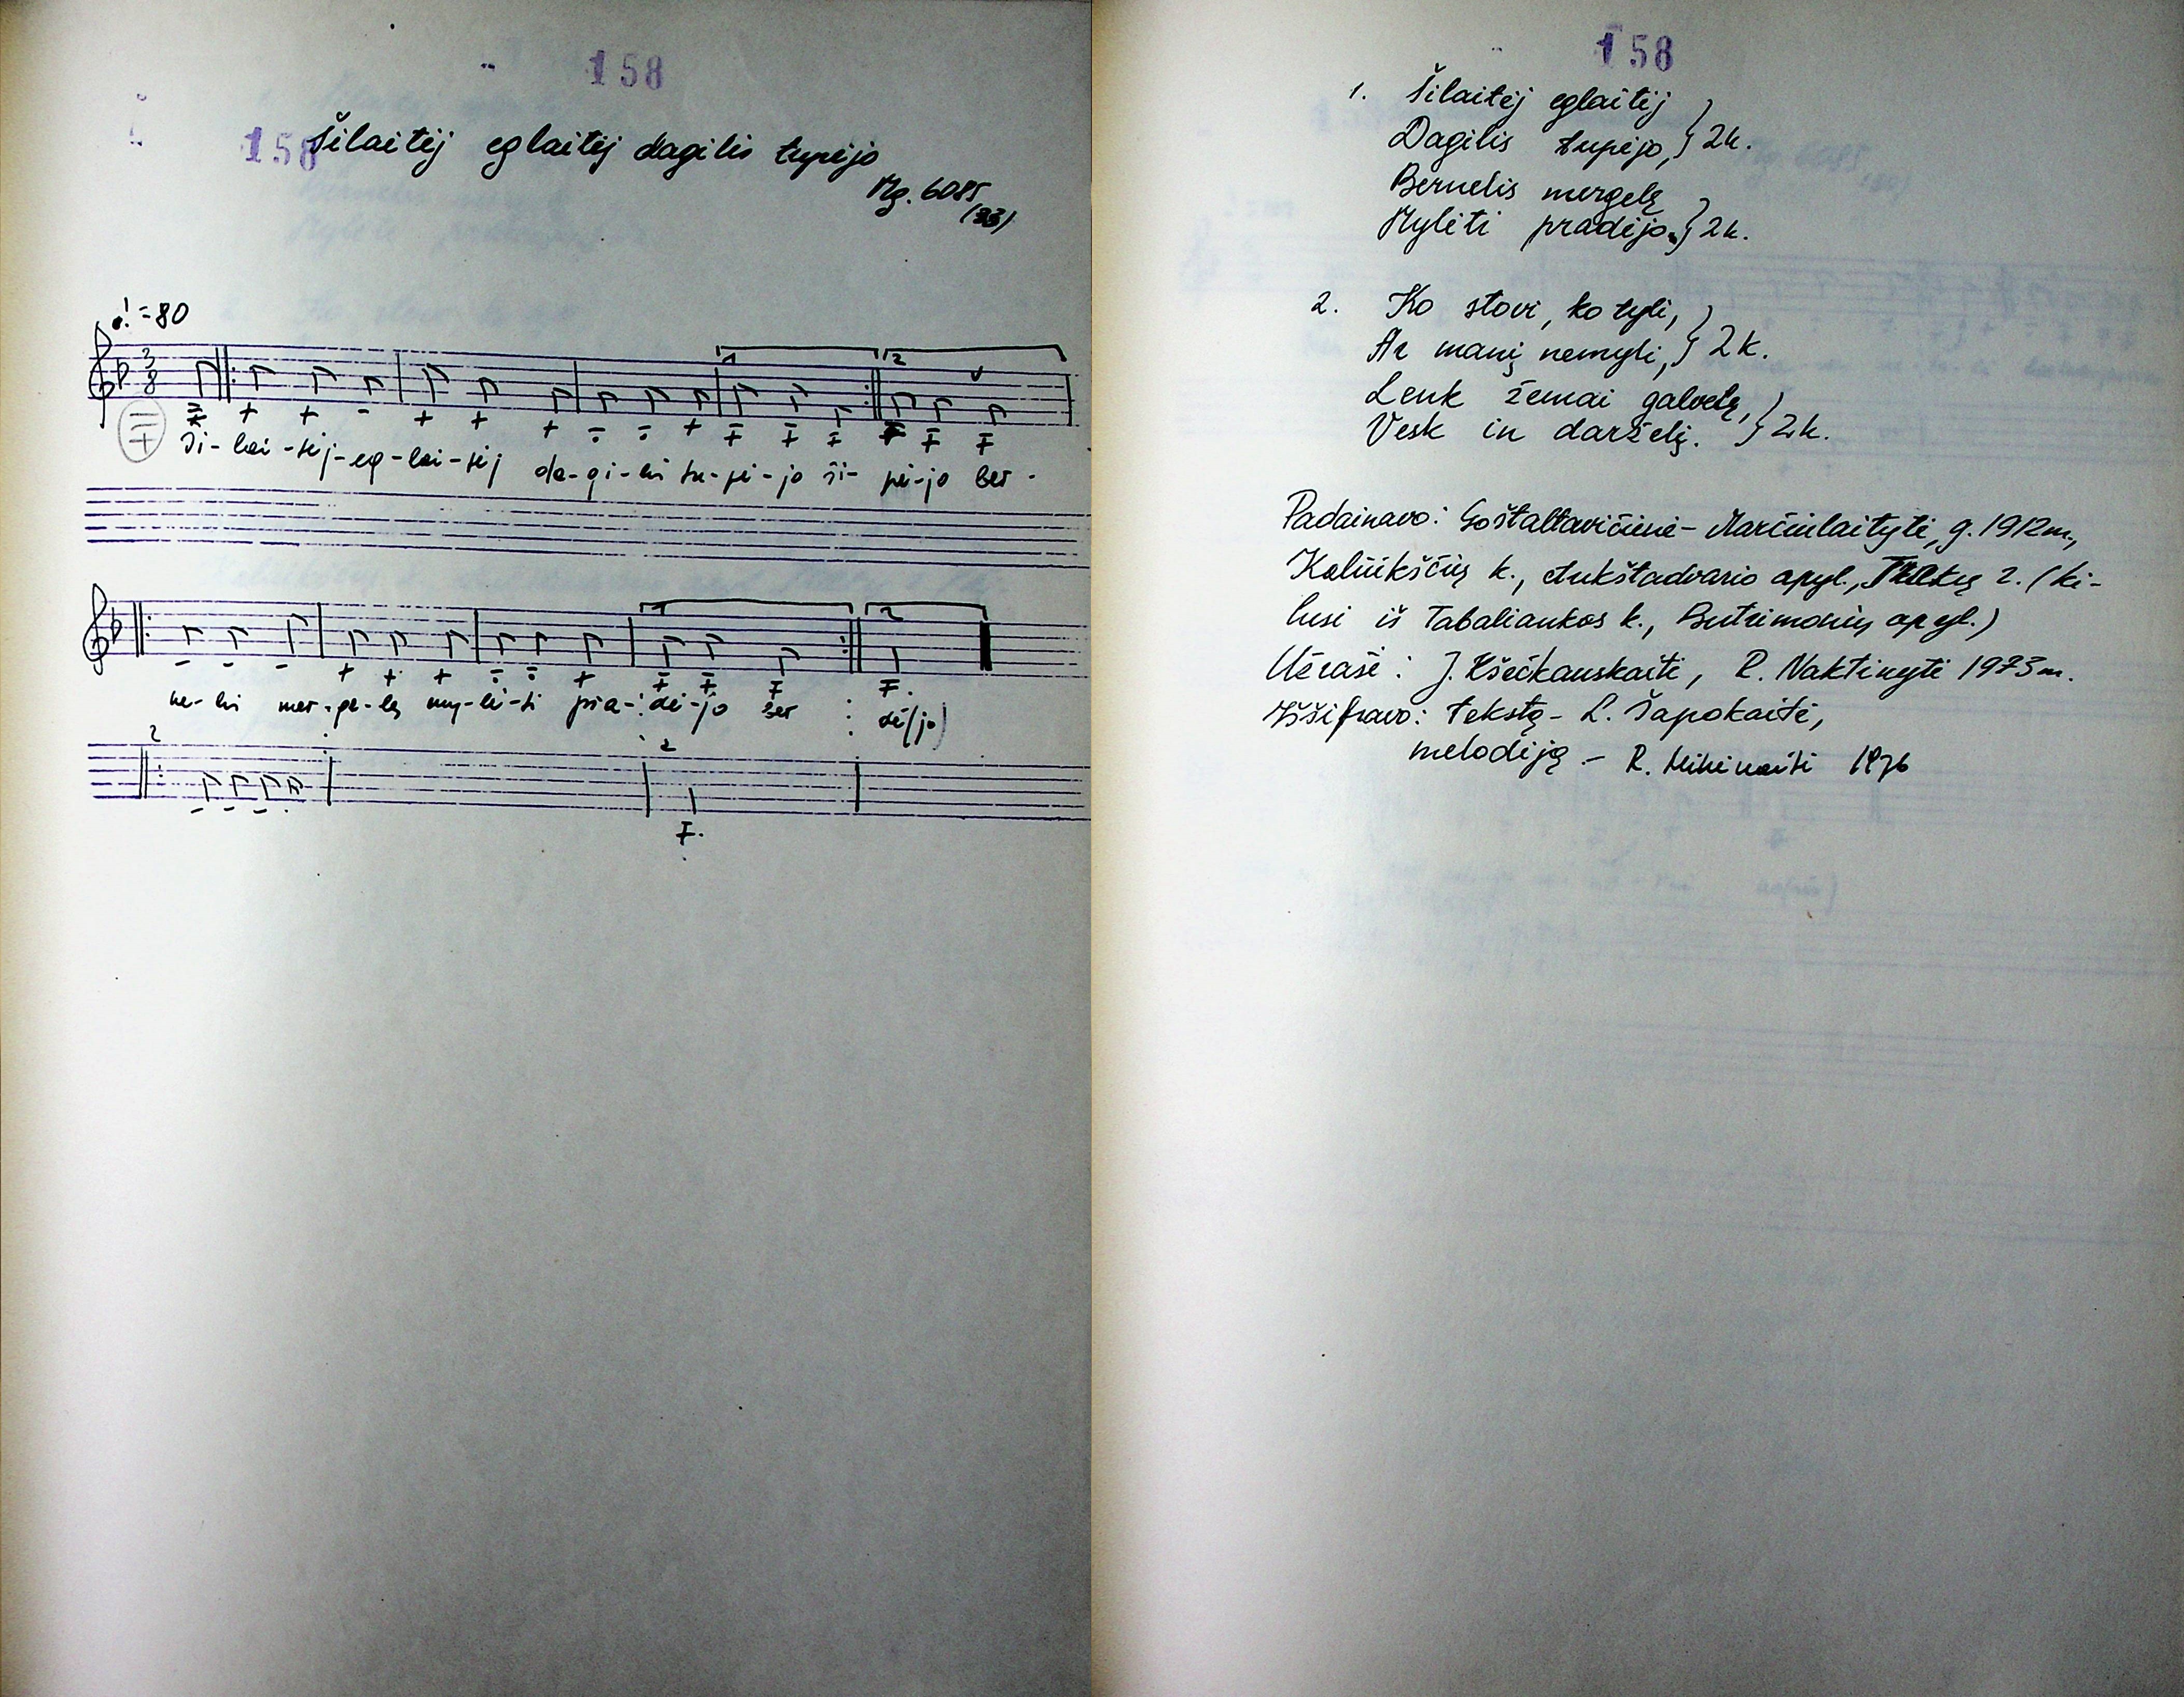 158
158
Šilaitėj eglaitėj dagilis tupėjo
Mg. 6085
(33)
♩. = 80
3
8
1
2
Ši-lai-tėj-eg-lai-tėj da-gi-lis tu-pė-jo ši- pė-jo ber-
1
2
ne-lis mer-ge-lę my-lė-ti pra-dė-jo ber : dė(jo)
2
2
158
1. Šilaitėj eglaitėj
Dagilis tupėjo, } 2k.
Bernelis mergelę
Mylėti pradėjo. } 2k.
2. Ko stovi, ko tyli,
Ar manį nemyli, } 2k.
Lenk žemai galvelę,
Vesk in darželį. } 2k.
Padainavo: Goštaltavičienė - Marčiulaitytė, g. 1912m.,
k., Aukštadvario apyl., Trakų r. (ki-
lusi iš Tabaliaukos k., Butrimonių apyl.)
Užrašė: J. Kšečkauskaitė, R. Naktinytė 1973m.
Iššifravo: tekstą - L. Šapokaitė,
melodiją - R. 1976